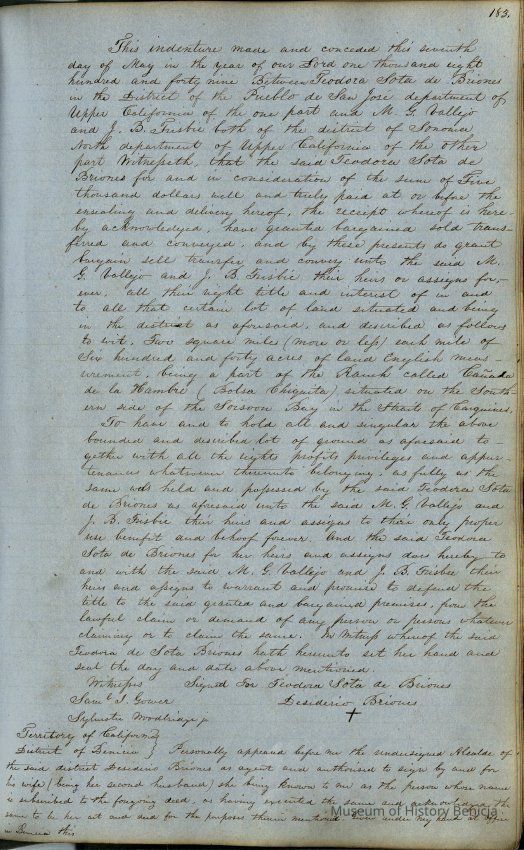 183.
This indenture made and conceded this seventh
day of May in the year of our Lord one thousand eight
hundred and forty nine Between Teodora Sota de Briones
in the District of the Pueblo de San José department of
Upper California of the one part and M. G. Vallejo
and J. B. Frisbie both of the district of Sonoma
North department of Upper California of the other
part Witnesseth, that the said Teodora Sota de
Briones for and in consideration of the sum of Five
thousand dollars well and truly paid at or before the
ensealing and delivery hereof, the receipt whereof is here-
by acknowledged, have granted bargained sold trans-
ferred and conveyed, and by these presents do grant
bargain sell transfer and convey unto the said M.
G. Vallejo and J. B Frisbie their heirs or assigns for,-
ever, all their right title and interest of in and
to all that certain lot of land situated and being
in the district as aforesaid, and described as follows
to wit. Two square miles (more or less) each mile of
Six hundred and forty acres of land English meas-
urement, being a part of the Ranch called Cañada
de la Hambre (Bolsa Chiquita) situated on the South-
ern side of the Soosoon Bay in the Straits of Carquines.
To have and to hold all and singular the above
bounded and described lot of ground as aforesaid to-
gether with all the rights profits privileges and appur-
tenances whatsoever thereunto belonging, as fully as the
same was held and possessed by the said Teodora Sota
de Briones as aforesaid unto the said M. G. Vallejo and
J. B. Frisbie their heirs and assigns to their only proper
use benefit and behoof forever. And the said Teodora
Sota de Briones for her heirs and assigns does hereby to
and with the said M. G. Vallejo and J. B. Frisbie their
heirs and assigns to warrant and promise to defend the
title to the said granted and bargained premises, from the
lawful claim or demand of any person or persons whatever
claiming or to claim the same. In Witness whereof the said
Teodora de Sota Briones hath hereunto set her hand and
seal the day and date above mentioned.
Witnesses Signed For Teodora Sota de Briones
Saml. J. Gower Desiderio Briones
Sylvester Woodbridge Jr +
Territory of California }
District of Benicia } Personally appeared before me the undersigned Alcalde of
the said district Desiderio Briones as agent and authorised to sign by and for
his wife (being her second husband) she being known to me as the person whose name
is subscribed to the foregoing deed, as having executed the same and acknowledges the
same to be her act and deed for the purposes therein mentioned. Given under my hand at office
in Benicia this
Museum of History Benicia